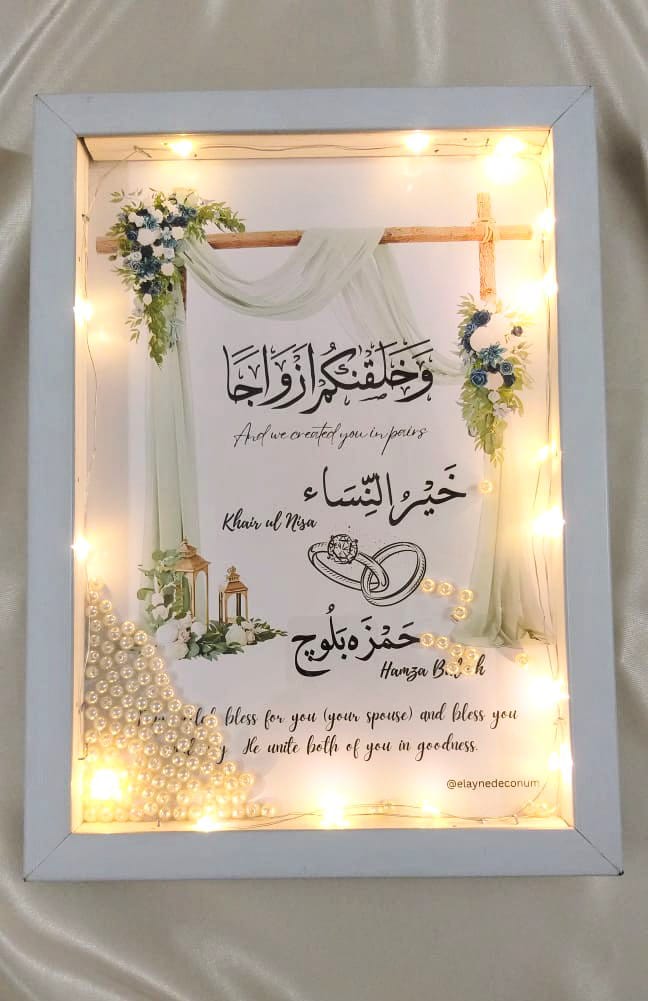 وَخَلَقْنٰكُمْ اَزْوَاجًا
And we created you in pairs
خَيْرُ النِّسَاء
Khair ul Nisa
حَمْزَہ بَلُوچ
Hamza
bless for you (your spouse) and bless you
He unite both of you in goodness.
@elaynedeconum